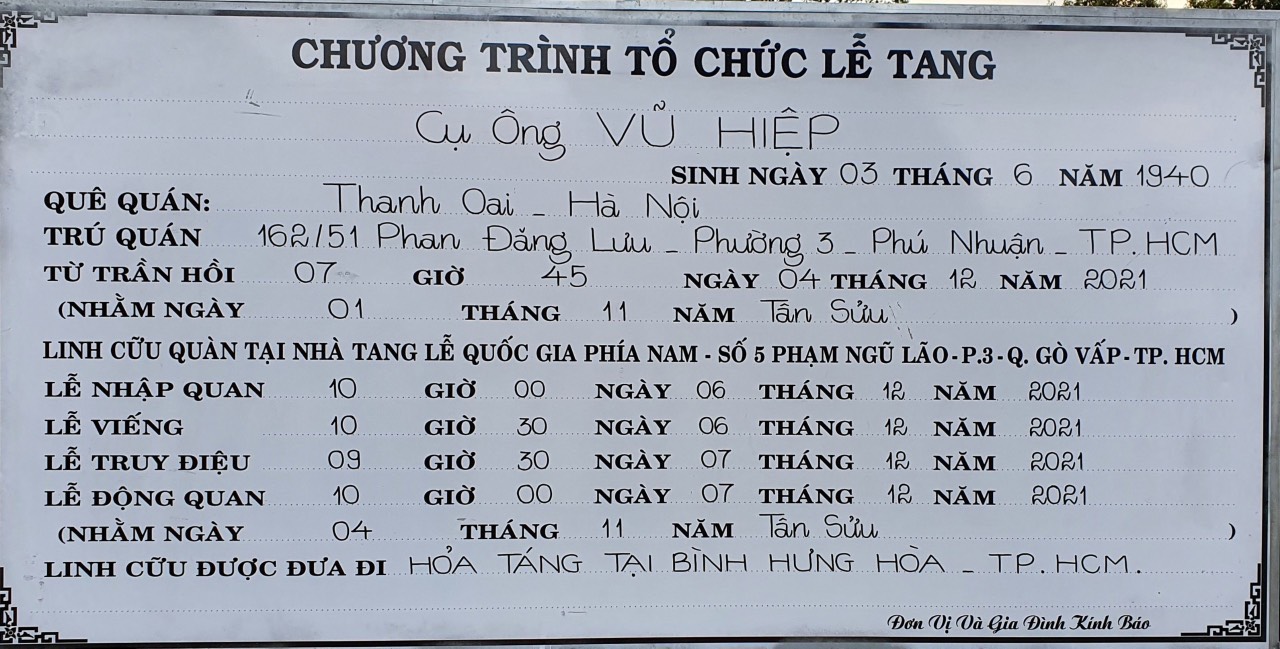 CHƯƠNG TRÌNH TỔ CHỨC LỄ TANG
Cụ Ông VŨ HIỆP
SINH NGÀY 03 THÁNG 6 NĂM 1940
QUÊ QUÁN: Thanh Oai - Hà Nội
TRÚ QUÁN 162/51 Phan Đăng Lưu - Phường 3 - Phú Nhuận - TP.HCM
TỪ TRẦN HỒI 07 GIỜ 45 NGÀY 04 THÁNG 12 NĂM 2021
(NHẰM NGÀY 01 THÁNG 11 NĂM Tân Sửu )
LINH CỮU QUÀN TẠI NHÀ TANG LỄ QUỐC GIA PHÍA NAM - SỐ 5 PHẠM NGŨ LÃO-P.3-Q. GÒ VẤP-TP. HCM
LỄ NHẬP QUAN 10 GIỜ 00 NGÀY 06 THÁNG 12 NĂM 2021
LỄ VIẾNG 10 GIỜ 30 NGÀY 06 THÁNG 12 NĂM 2021
LỄ TRUY ĐIỆU 09 GIỜ 30 NGÀY 07 THÁNG 12 NĂM 2021
LỄ ĐỘNG QUAN 10 GIỜ 00 NGÀY 07 THÁNG 12 NĂM 2021
(NHẰM NGÀY 04 THÁNG 11 NĂM Tân Sửu )
LINH CỮU ĐƯỢC ĐƯA ĐI HỎA TÁNG TẠI BÌNH HƯNG HÒA - TP.HCM.
Đơn Vị Và Gia Đình Kính Báo